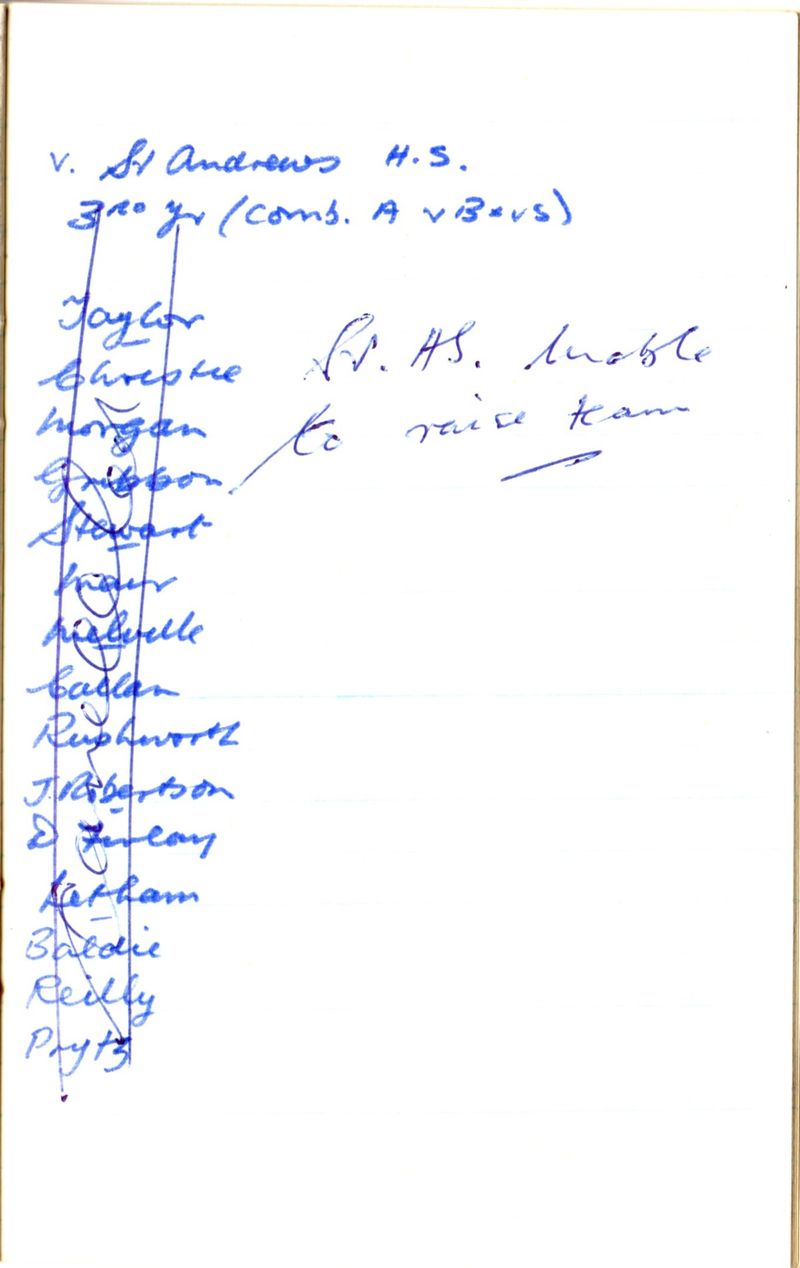 v. St Andrews H.S.
3RD yr (Comb. A v B XVS)
Taylor
Christie
Morgan
Gribbon
Stewart
Mair
Melville
Callan
Rushworth
J. Robertson
D Finlay
Letham
Baldie
Reilly
Prytz
Cancelled
St. AS. Unable
to raise team